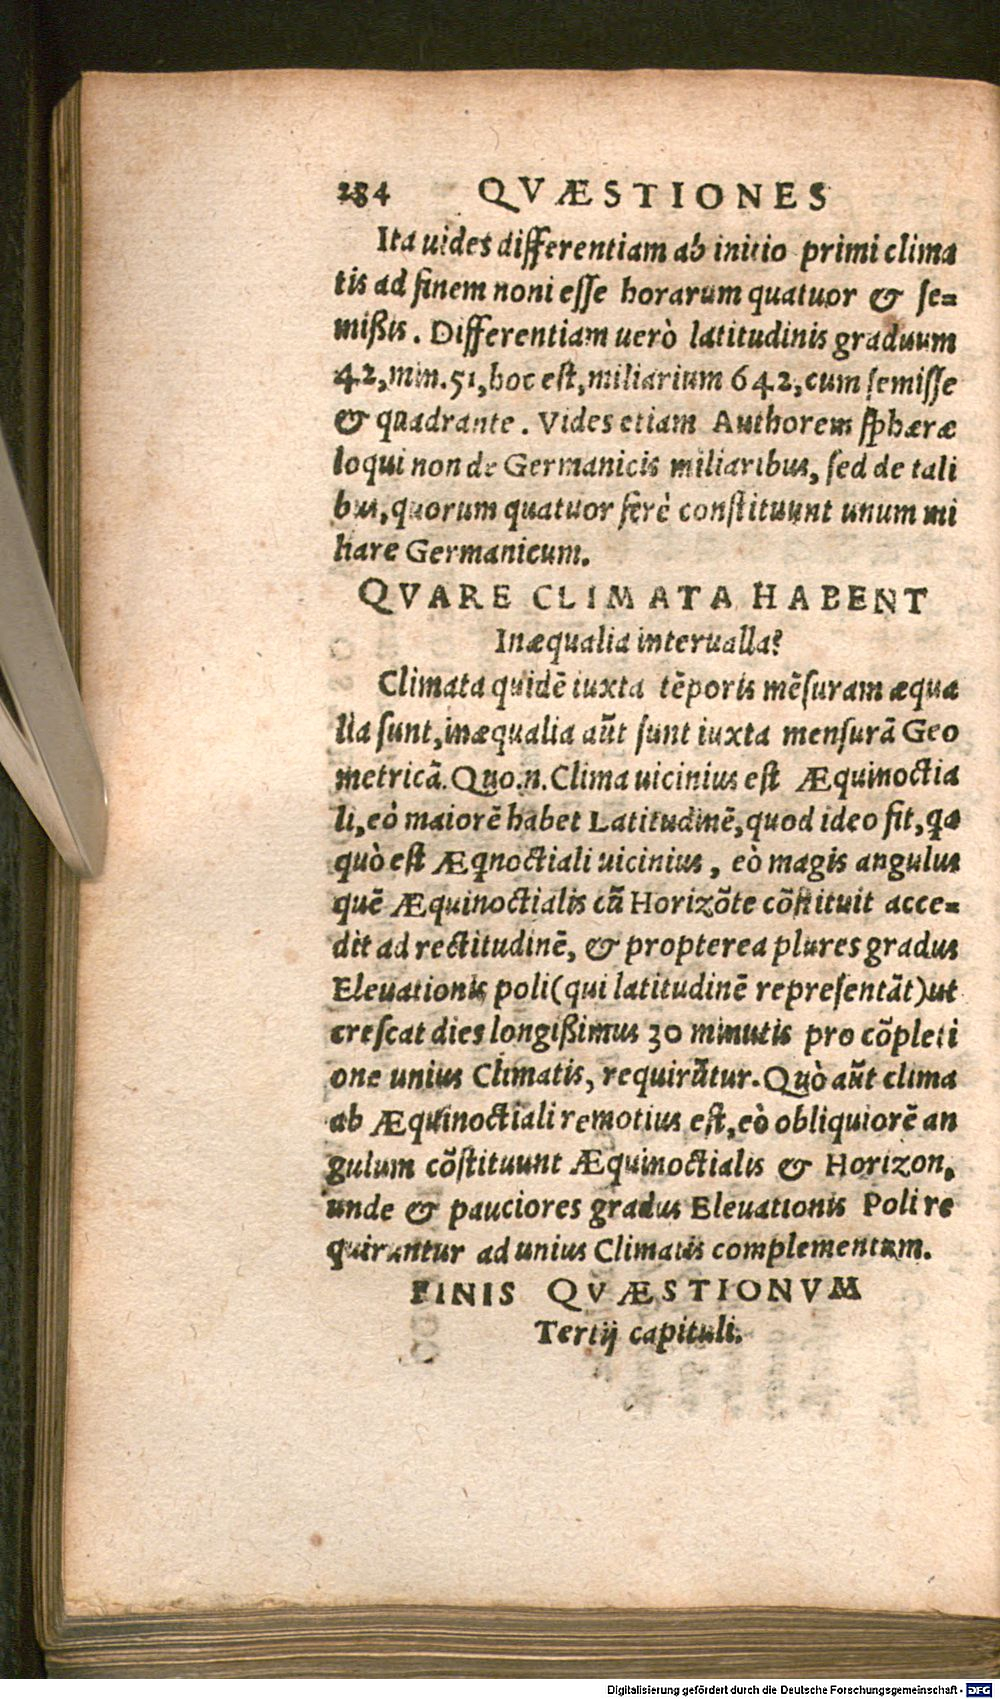 284 QVÆSTIONES
Ita uides differentiam ab initio primi clima
tis ad finem noni esse horarum quatuor & se=
mißis. Differentiam uerò latitudinis graduum
42, min. 51, hoc est, miliarium 642, cum semisse
& quadrante. Vides etiam Authorem sphæræ
loqui non de Germanicis miliaribus, sed de tali
bus, quorum quatuor ferè constituunt unum mi
liare Germanicum.
QVARE CLIMATA HABENT
Inæqualia interualla?
Climata quidē iuxta tēporis mēsuram æqua
lia sunt, inæqualia aūt sunt iuxta mensurā Geo
metricā. Quo.n. Clima uicinius est Æquinoctia
li, eò maiorē habet Latitudinē, quod ideo fit, qa
quò est Æqnoctiali uicinius, eò magis angulus
quē Æquinoctialis cū Horizōte cōstituit acce=
dit ad rectitudinē, & propterea plures gradus
Eleuationis poli (qui latitudinē representāt) ut
crescat dies longißimus 30 minutis pro cōpleti
one unius Climatis, requirūtur. Quò aūt clima
ab Æquinoctiali remotius est, eò obliquiorē an
gulum cōstituunt Æquinoctialis & Horizon,
unde & pauciores gradus Eleuationis Poli re
quiruntur ad unius Climatis complementum.
FINIS QVÆSTIONVM
Tertij capituli.
Digitalisierung gefördert durch die Deutsche Forschungsgemeinschaft - DFG